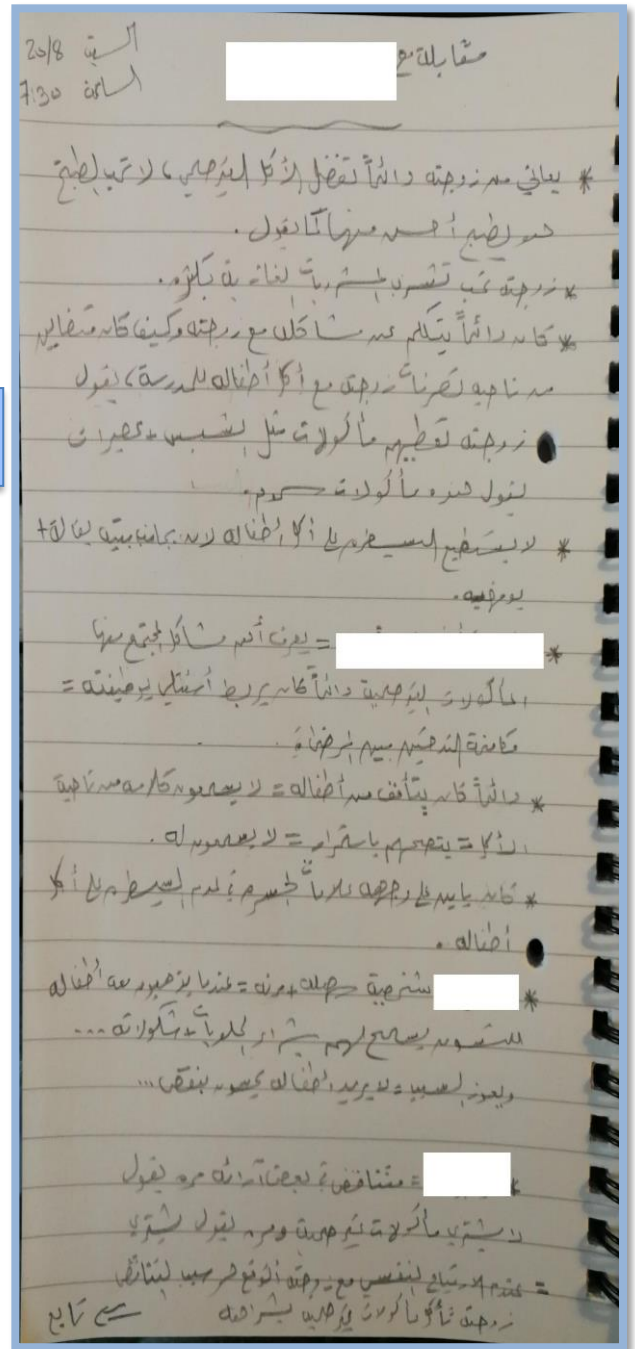 مقابلة مع
السبت 20/8
الساعة 7:30
* يعاني من زوجته دائماً تفضل الأكل الغير صحي، لا تحب الطبخ
هو يطبخ أحسن منها كما يقول.
* زوجته تحب تشتري المشروبات الغازية بكثرة.
* كان دائماً يتكلم عن مشاكله مع زوجته وكيف كان متضايق
من ناحية تصرفات زوجته مع أكل أطفاله للمدرسة، يقول
زوجته تعطيهم مأكولات مثل الشبس + عصيرات
يقول هذه مأكولات سموم.
* لا يستطيع السيطرة على أكل أطفاله لان بجانب بيته بقالة +
يوميه.
* = يعرف أكثر مشاكل المجتمع منها
المأكولات الغير صحية دائماً كان يربط أسئلتي بوظيفته =
مكافحة التدخين بين المرضى.
* دائماً كان يتأفف من أطفاله = لا يسمعون كلامه من ناحية
الأكل = ينصحهم باستمرار = لا يسمعون له.
* كان يبان على وجهه علامات الحسرة في عدم السيطرة على أكل
أطفاله.
* شخصية سهلة + مرنه = عندما يذهبون معه أطفاله
للتسوق يسمح لهم بشراء الحلويات + شكولاته ...
ويعود السبب = لا يريد أطفاله يحسون بنقص ...
* = متناقض في بعض آرائه مره يقول
لا يشتري مأكولات غير صحية ومره يقول يشتري
= عدم الارتياح النفسي مع زوجته أتوقع هو سبب التناقض
زوجته تأكل مأكولات غير صحية بشراهة
يتابع